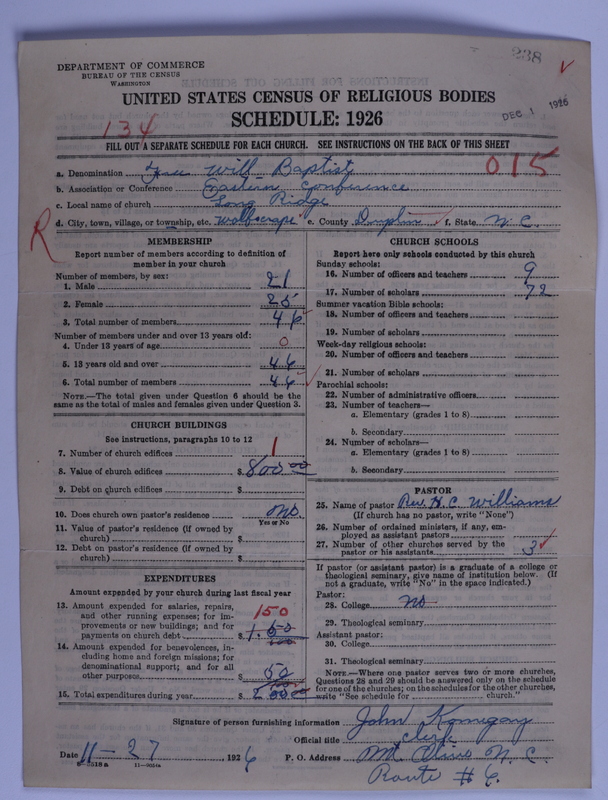 238
DEPARTMENT OF COMMERCE
BUREAU OF THE CENSUS
WASHINGTON
UNITED STATES CENSUS OF RELIGIOUS BODIES
SCHEDULE: 1926
DEC 1 1926
134
FILL OUT A SEPARATE SCHEDULE FOR EACH CHURCH. SEE INSTRUCTIONS ON THE BACK OF THIS SHEET
015
a. Denomination Free Will Baptist
b. Association or Conference Eastern Conference
c. Local name of church Long Ridge
d. City, town, village, or township, etc. Wolfscrape e. County Duplin f. State N.C.
R
MEMBERSHIP
Report number of members according to definition of member in your church
Number of members, by sex:
1. Male 21
2. Female 25
3. Total number of members 46
Number of members under and over 13 years old:
4. Under 13 years of age 0
5. 13 years old and over 46
6. Total number of members 46
NOTE.—The total given under Question 6 should be the same as the total of males and females given under Question 3.
CHURCH BUILDINGS
See instructions, paragraphs 10 to 12
7. Number of church edifices 1
8. Value of church edifices $ 800.00
9. Debt on church edifices $
10. Does church own pastor's residence no.
Yes or No
11. Value of pastor's residence (if owned by church) $
12. Debt on pastor's residence (if owned by church) $
EXPENDITURES
Amount expended by your church during last fiscal year
13. Amount expended for salaries, repairs, and other running expenses; for improvements or new buildings; and for payments on church debt 150
14. Amount expended for benevolences, including home and foreign missions; for denominational support; and for all other purposes $ 50
15. Total expenditures during year $
CHURCH SCHOOLS
Report here only schools conducted by this church
Sunday schools:
16. Number of officers and teachers 9
17. Number of scholars 72
Summer vacation Bible schools:
18. Number of officers and teachers
19. Number of scholars
Week-day religious schools:
20. Number of officers and teachers
21. Number of scholars
Parochial schools:
22. Number of administrative officers
23. Number of teachers—
a. Elementary (grades 1 to 8)
b. Secondary
24. Number of scholars—
a. Elementary (grades 1 to 8)
b. Secondary
PASTOR
25. Name of pastor Rev. H. C. Williams
(If church has no pastor, write "None")
26. Number of ordained ministers, if any, employed as assistant pastors
27. Number of other churches served by the pastor or his assistants 3
If pastor (or assistant pastor) is a graduate of a college or theological seminary, give name of institution below. (If not a graduate, write "No" in the space indicated.)
Pastor:
28. College no
29. Theological seminary
Assistant pastor:
30. College
31. Theological seminary
NOTE.—Where one pastor serves two or more churches, Questions 28 and 29 should be answered only on the schedule for one of the churches; on the schedules for the other churches, write "See schedule for church."
Signature of person furnishing information John Kornegay
Official title clerk
Date 11-27 1926 P. O. Address Mt. Olive N.C.
Route # 6.